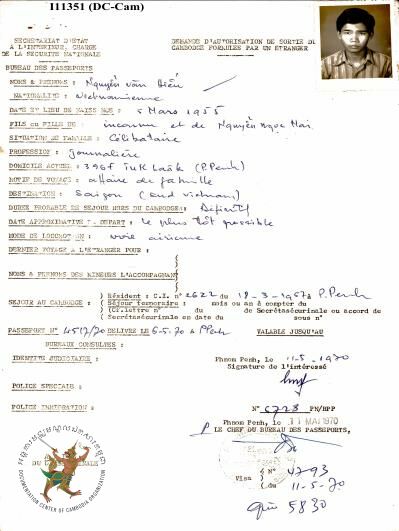 I11351 (DC-Cam)
SECRETARIAT D'ETAT
A L'INTERIEUR, CHARGE
DE LA SECURITE NATIONALE
DEMANDE D'AUTORISATION DE SORTIE DU
CAMBODGE FORMULEE PAR UN ETRANGER
BUREAU DES PASSEPORTS
NOMS & PRENOMS : Nguyễn văn Hiếu
NATIONALITE : Vietnamienne
DATE ET LIEU DE NAISSANCE : 5 Mars 1955
FILS ou FILLE DE : inconnu et de Nguyễn Ngọc Mai
SITUATION DE FAMILLE : Célibataire
PROFESSION : Journalière
DOMICILE ACTUEL : 396f Tuk Laâk (P.Penh)
MOTIF DE VOYAGE : affaire de famille
DESTINATION : Saigon (Sud Vietnam)
DUREE PROBABLE DE SEJOUR HORS DU CAMBODGE : Définitif
DATE APPROXIMATIVE DE DEPART : le plus tôt possible
MODE DE LOCOMOTION : voie aérienne
DERNIER VOYAGE A L'ETRANGER POUR :
NOMS & PRENOMS DES MINEURS L'ACCOMPAGNANT
SEJOUR AU CAMBODGE : Résident : C.I. n° 2622 du 18-3-1957 à P.Penh
Séjour temporaire : mois ou an à compter du
(Cf. lettre n° du de Secrétasécurinale ou accord de
Secrétasécurinale en date du sous n°
PASSEPORT N° 4517/70 DELIVRE LE 6-5-70 à PPenh VALABLE JUSQU'AU
BUREAUX CONSULTES :
IDENTITE JUDICIAIRE :
Phnom Penh, le 11-5-1970
Signature de l'intéressé
POLICE SPECIALE :
POLICE IMMIGRATION :
N° 6728 PN/BPP
Phnom Penh, le 11 MAI 1970
P LE CHEF DU BUREAU DES PASSEPORTS,
Visa
N° 4793
du 11-5-70
5830
DOCUMENTATION CENTER OF CAMBODIA ORGANIZATION